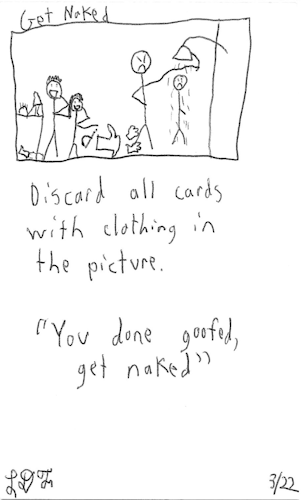 Get Naked
Discard all cards
with clothing in
the picture.
"You done goofed,
get naked"
3/22